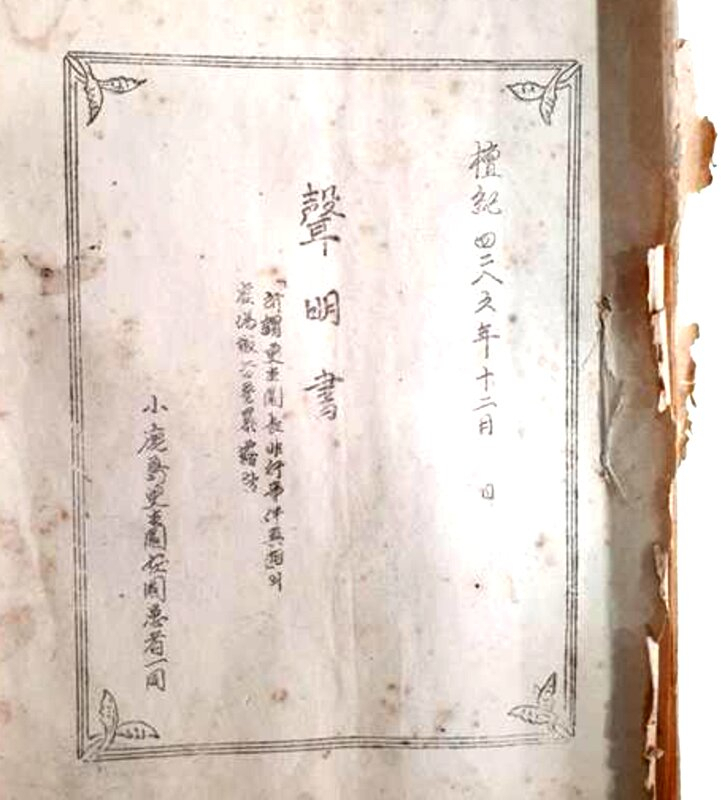 檀紀四二八五年十二月 日
聲明書
「所謂更生園長非行事件眞面의
小鹿島更生園在園患者一同